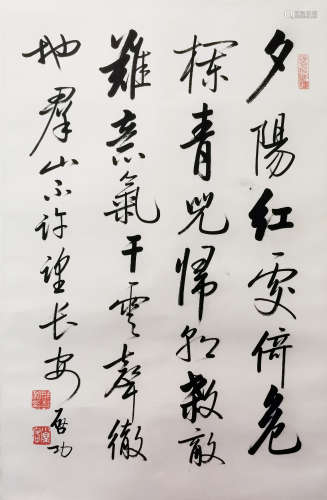 夕陽紅處倚危
欄青兕歸朝殺敵
難意氣干雲聲徹
地羣山不許望長安
启功